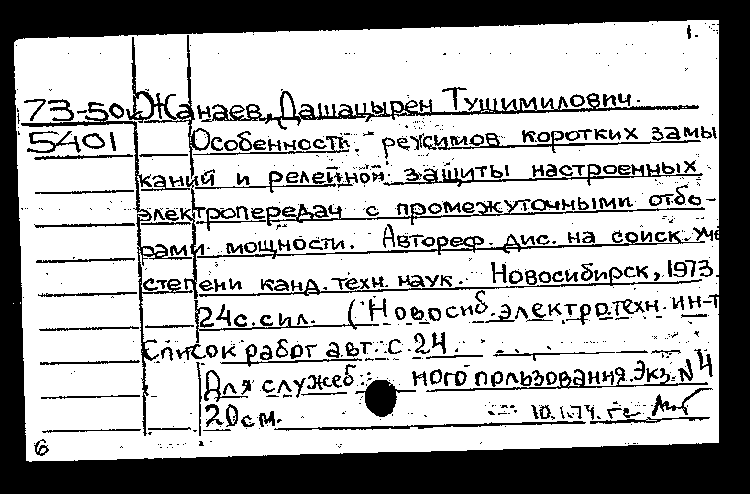 1.
73-50к Жанаев, Дашацырен Тушимилович.
5401 Особенность режимов коротких замы
каний и релейной защиты настроенных
электропередач с промежуточными отбо-
рами мощности. Автореф. дис. на соиск. уче
степени канд. техн. наук. Новосибирск, 1973.
24с. с ил. (Новосиб. электротехн. ин-т
Список работ авт. с. 24.
Для служеб ного пользования. Экз. N 4
20см. 10.1.74.
6